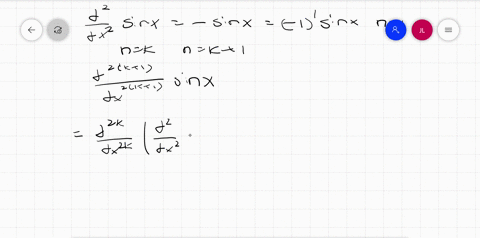 d²/dx² sinx = - sinx = (-1)¹ sinx n
n=k n=k+1
d^2(k+1)/dx^2(k+1) sinx
= d^2k/dx^2k ( d²/dx²
JL